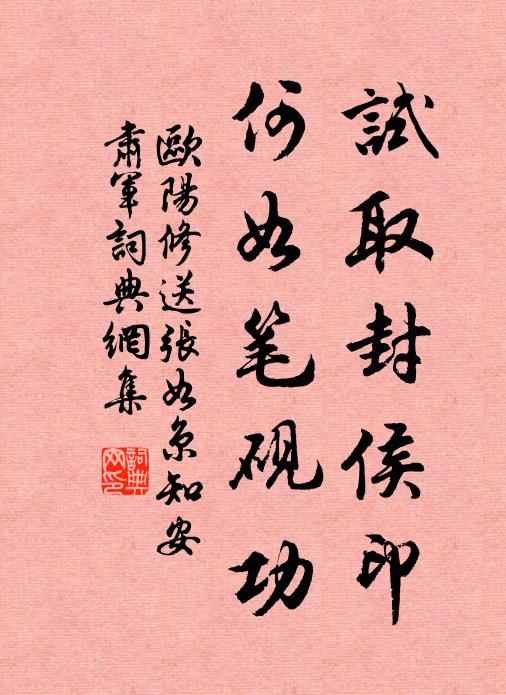 試取封侯印
何如笔硯功
歐陽修送張如京知安
肅軍詞典網集
詞典
网印